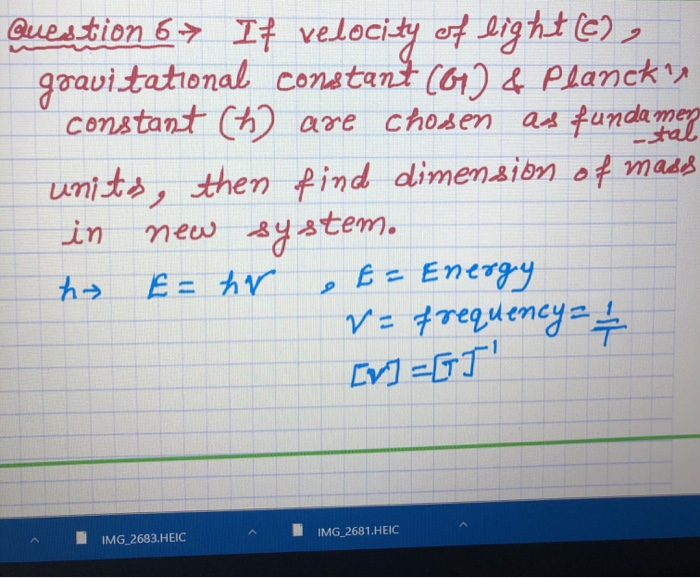 Question 6→ If velocity of light (c),
gravitational constant (G) & Planck's
constant (h) are chosen as fundamen
-tal
units, then find dimension of mass
in new system.
h→ E = hν , E = Energy
ν = frequency = 1/T
[ν] = [T]⁻¹
IMG_2683.HEIC IMG_2681.HEIC